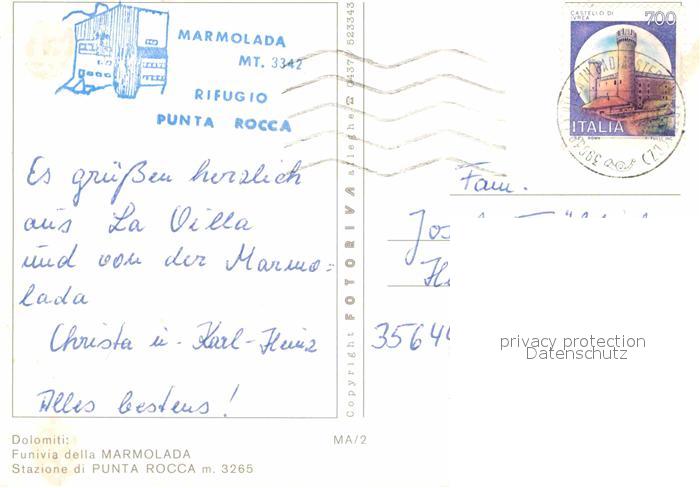 MARMOLADA
MT. 3342
RIFUGIO
PUNTA ROCCA
Es grüßen herzlich
aus La Villa
und von der Marmo=
lada
Christa u. Karl-Heinz
Alles bestens!
Dolomiti:
Funivia della MARMOLADA
Stazione di PUNTA ROCCA m. 3265
MA/2
Copyright FOTORIVA alleghe ☎ 0437 523343
CASTELLO DI
IVREA
700
ITALIA
Fam.
Jos
35644
privacy protection
Datenschutz